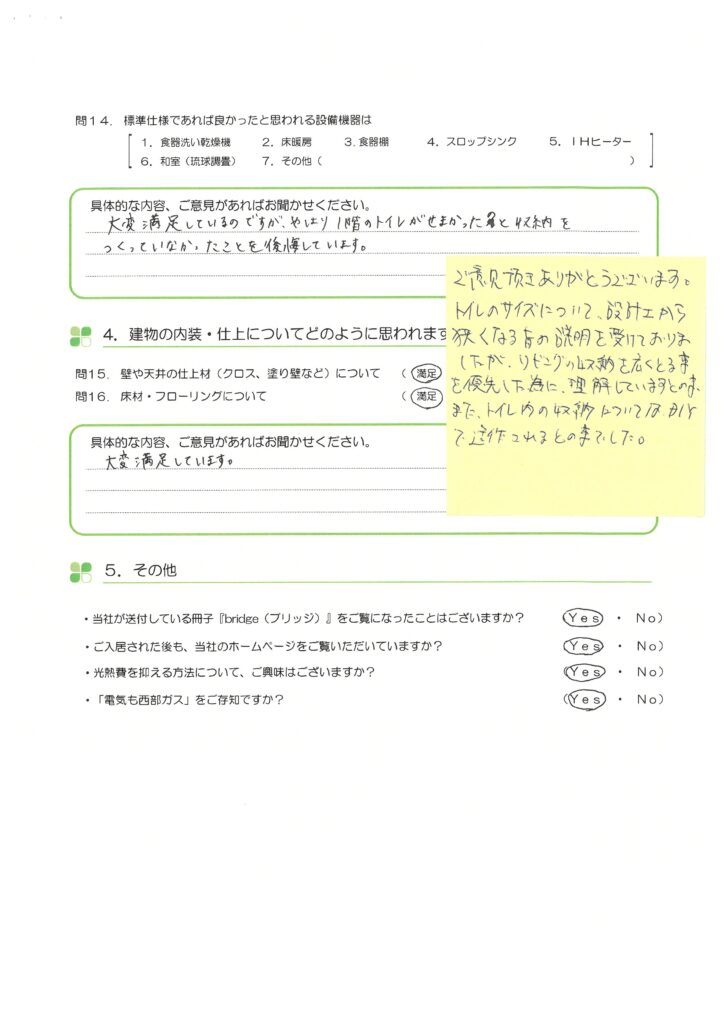 問14. 標準仕様であれば良かったと思われる設備機器は
1. 食器洗い乾燥機 2. 床暖房 3. 食器棚 4. スロップシンク 5. IHヒーター
6. 和室（琉球調畳） 7. その他（ ）
具体的な内容、ご意見があればお聞かせください。
大変満足しているのですが、やはり1階のトイレがせまかった と収納を
つくっていなかったことを後悔しています。
ご意見頂きありがとうございます。
トイレのサイズについて、設計士から
狭くなる旨の説明を受けておりま
したが、リビングの収納を広くとる事
を優先した為に、理解していますとの事、
また、トイレ内の収納については、DIY
で造作されるとの事でした。
4. 建物の内装・仕上についてどのように思われます
問15. 壁や天井の仕上材（クロス、塗り壁など）について （満足
問16. 床材・フローリングについて （満足
具体的な内容、ご意見があればお聞かせください。
大変満足しています。
5. その他
・当社が送付している冊子『bridge（ブリッジ）』をご覧になったことはございますか？ （Yes ・ No）
・ご入居された後も、当社のホームページをご覧いただいていますか？ （Yes ・ No）
・光熱費を抑える方法について、ご興味はございますか？ （Yes ・ No）
・「電気も西部ガス」をご存知ですか？ （Yes ・ No）